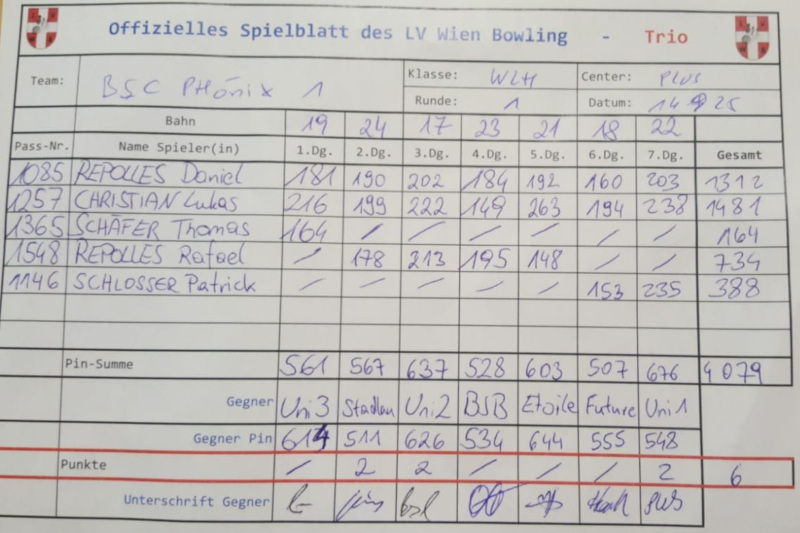 Offizielles Spielblatt des LV Wien Bowling - Trio
Team: BSC PHÖNIX 1 Klasse: WLH Center: PLUS
Runde: 1 Datum: 14 9 25
Bahn 19 24 17 23 21 18 22
Pass-Nr. Name Spieler(in) 1.Dg. 2.Dg. 3.Dg. 4.Dg. 5.Dg. 6.Dg. 7.Dg. Gesamt
1085 REPOLLES Daniel 181 190 202 184 192 160 203 1312
1257 CHRISTIAN Lukas 216 199 222 149 263 194 238 1481
1365 SCHÄFER Thomas 164 / / / / / / 164
1548 REPOLLES Rafael / 178 213 195 148 / / 734
1146 SCHLOSSER Patrick / / / / / 153 235 388
Pin-Summe 561 567 637 528 603 507 676 4079
Gegner Uni3 Stadlau Uni2 BSB Etoile Future Uni1
Gegner Pin 614 511 626 534 644 555 548
Punkte / 2 2 / / / 2 6
Unterschrift Gegner